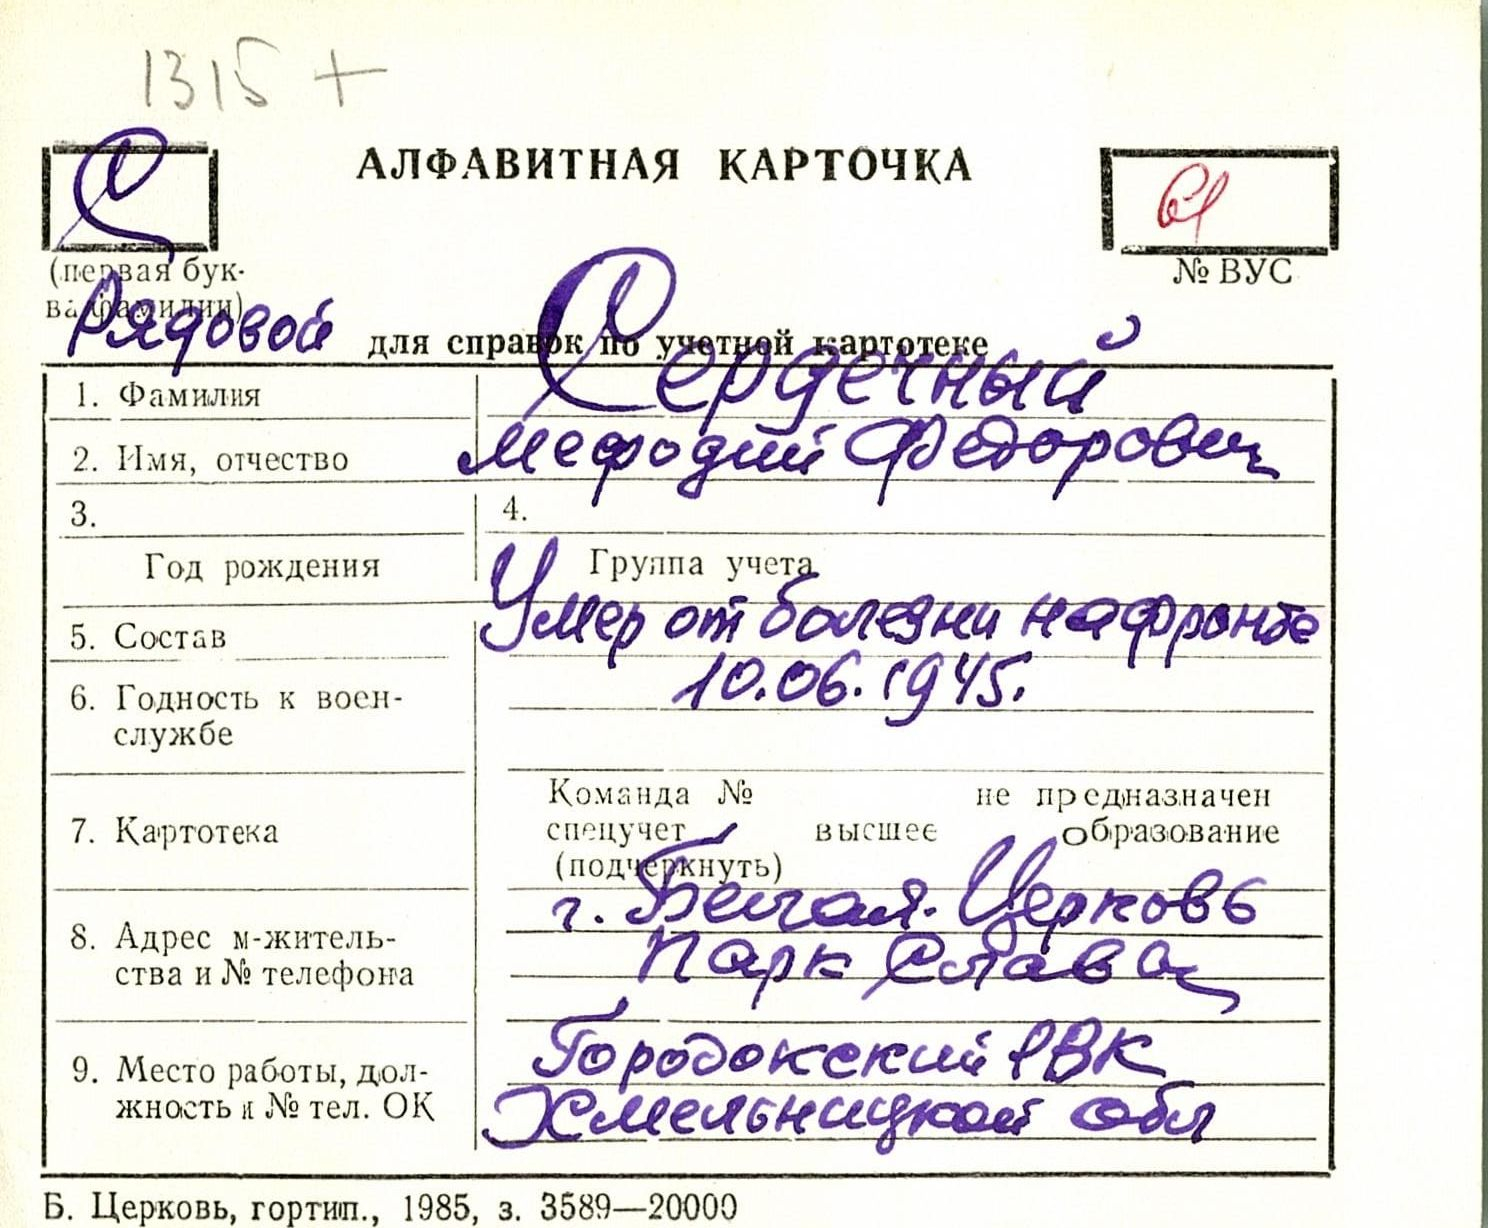 1315 +
С
АЛФАВИТНАЯ КАРТОЧКА
61
(первая бук-
ва фамилии)
№ ВУС
Рядовой
для справок по учетной картотеке
1. Фамилия
Сердечный
2. Имя, отчество
Мефодий Федорович
3.
4.
Год рождения
Группа учета
Умер от болезни на фронте
5. Состав
10.06.1945.
6. Годность к воен-
службе
Команда № не предназначен
7. Картотека
спецучет высшее образование
(подчеркнуть)
г. Белая-Церковь
8. Адрес м-житель-
ства и № телефона
Парк Слава
Городокский РВК
9. Место работы, дол-
жность и № тел. ОК
Хмельницкой обл
Б. Церковь, гортип., 1985, з. 3589—20000